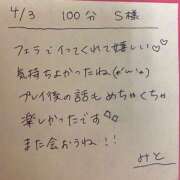 4/3 100分 S様
フェラでイってくれて嬉しい♡♡
気持ちよかったね(*´ω`*)
プレイ後の話もめちゃくちゃ
楽しかったです
また会おうね!!
みと